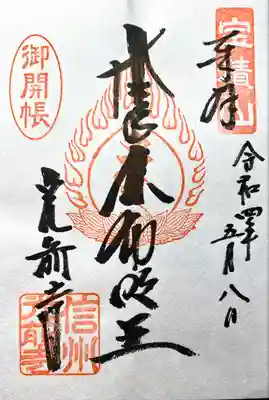 寳積山
奉拝
令和四年五月八日
不動明王
御開帳
光前寺
信州
光前寺